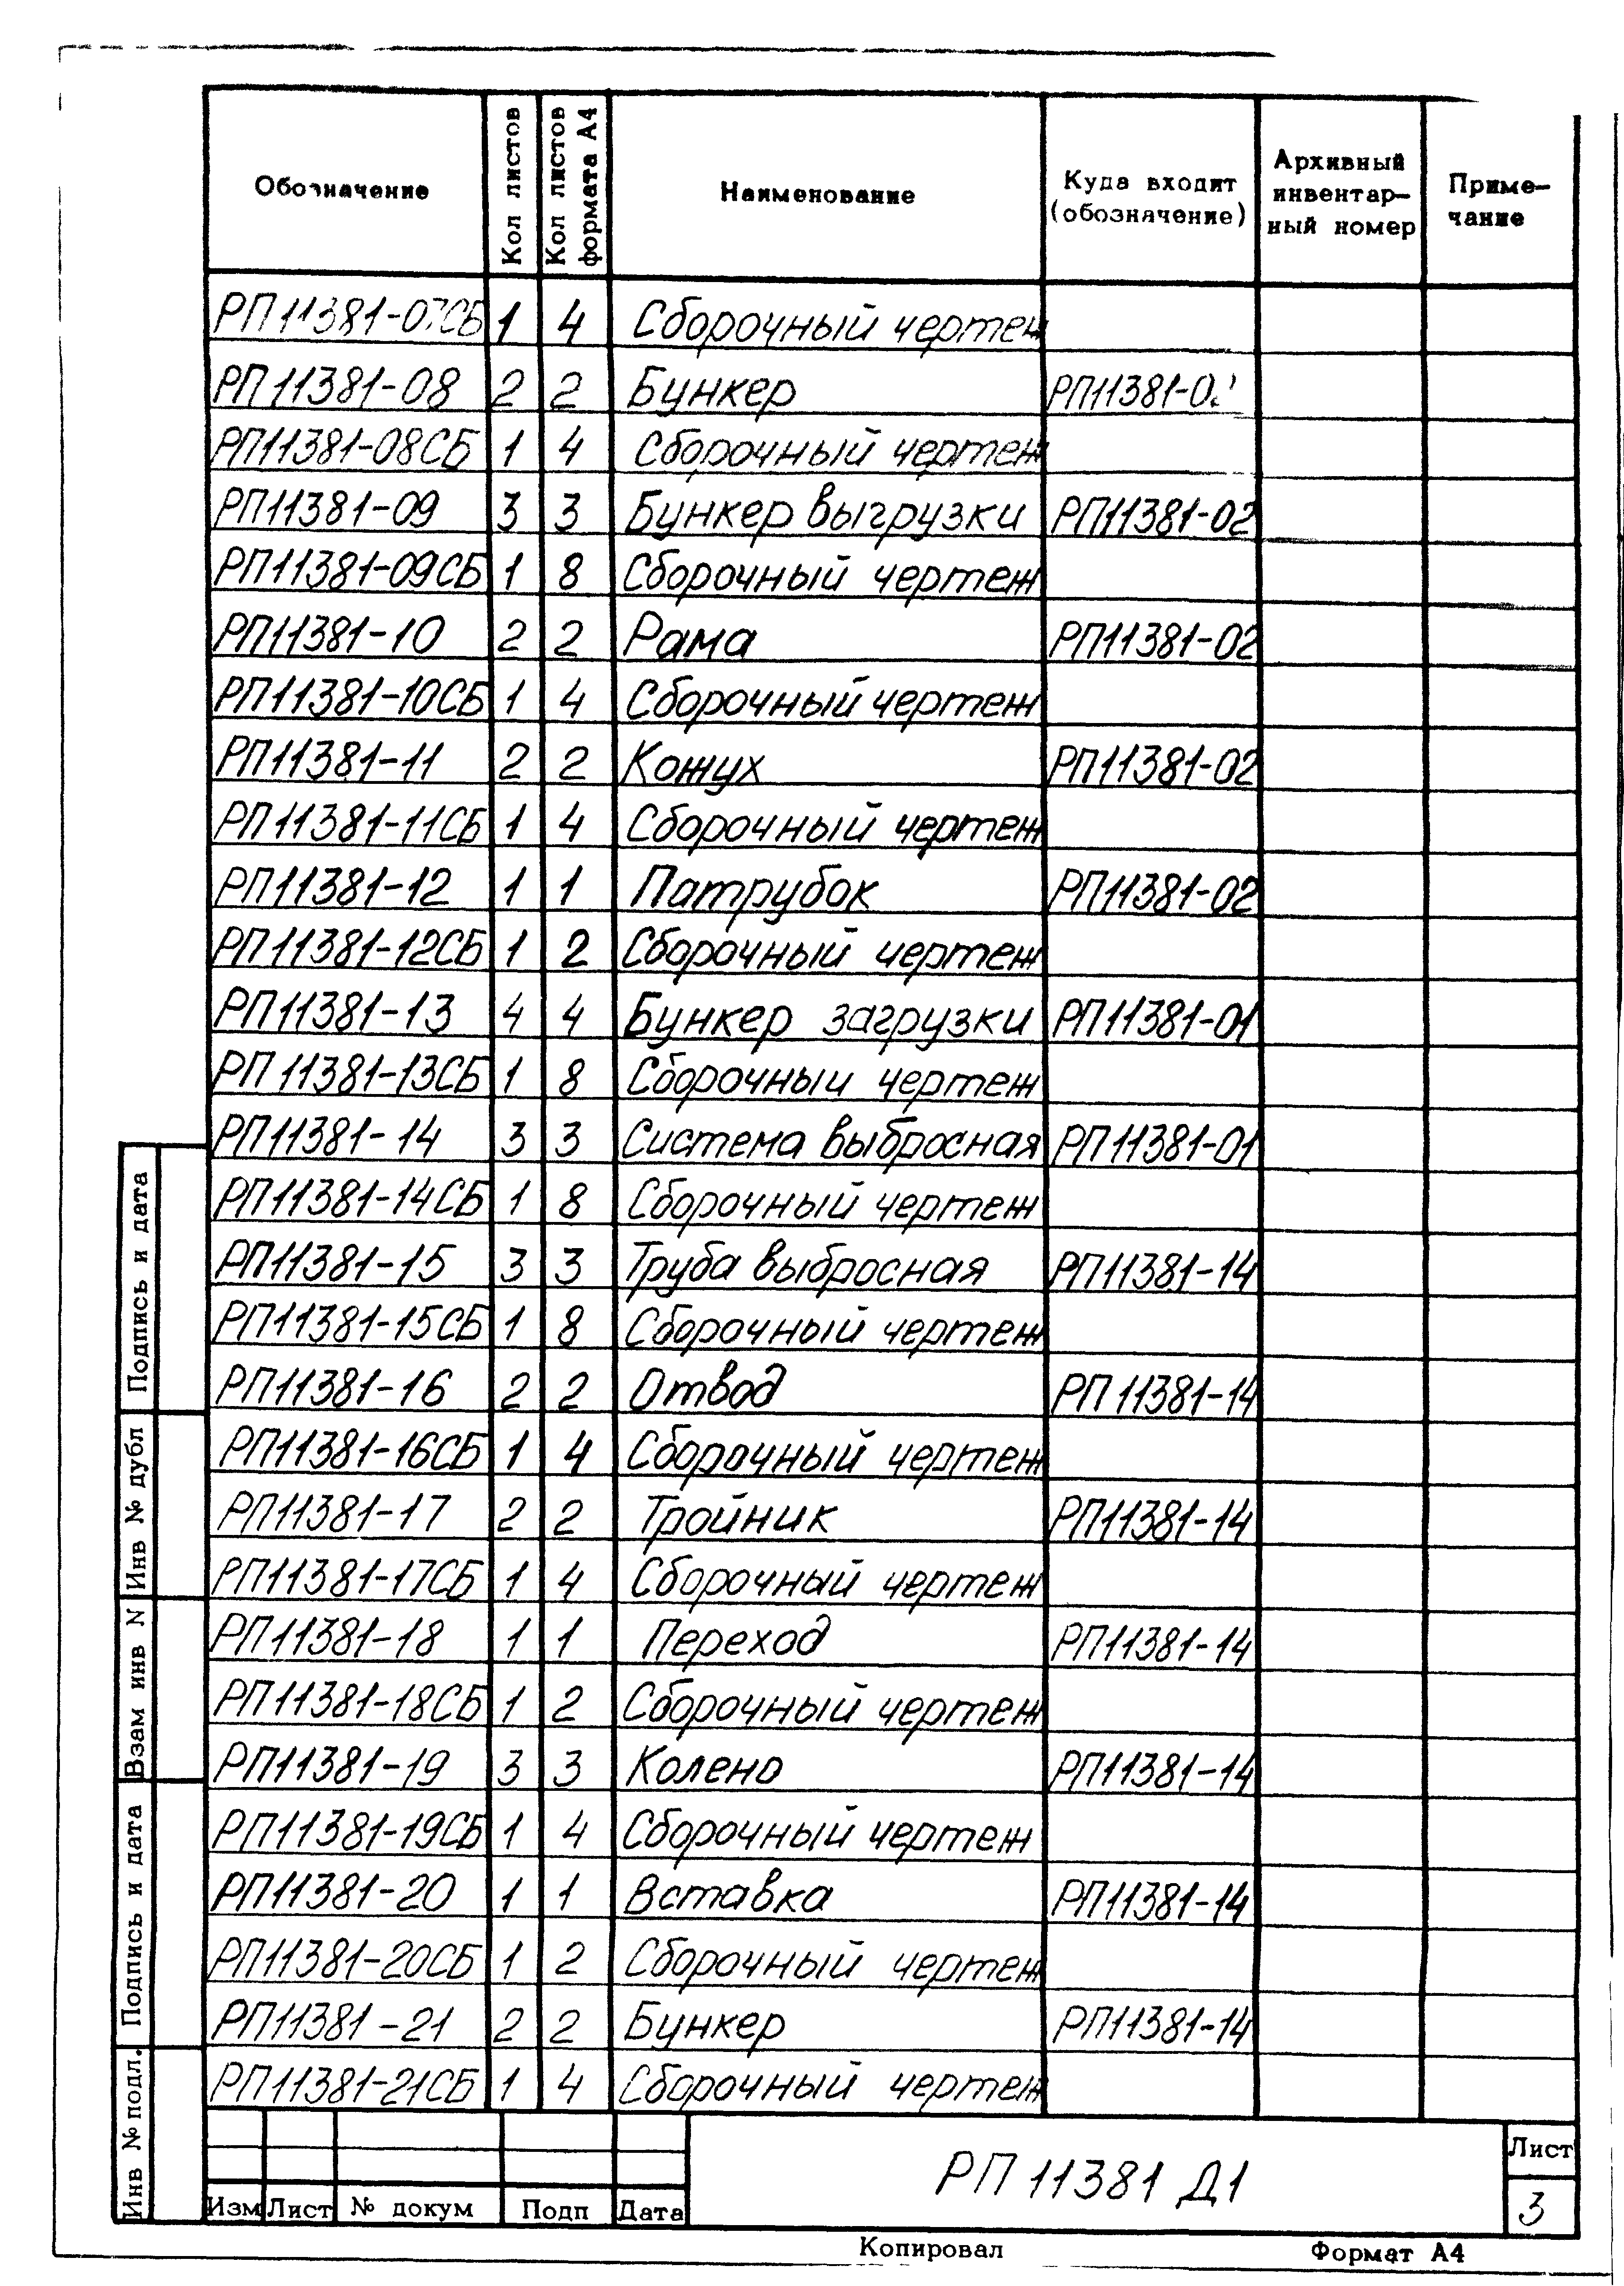 Обозначение Кол листов Кол листов формата А4 Наименование Куда входит (обозначение) Архивный инвентар- ный номер Приме- чание
РП11381-07СБ 1 4 Сборочный чертеж
РП11381-08 2 2 Бункер
РП11381-08СБ 1 4 Сборочный чертеж
РП11381-09 3 3 Бункер выгрузки РП11381-02
РП11381-09СБ 1 8 Сборочный чертеж
РП11381-10 2 2 Рама РП11381-02
РП11381-10СБ 1 4 Сборочный чертеж
РП11381-11 2 2 Кожух РП11381-02
РП11381-11СБ 1 4 Сборочный чертеж
РП11381-12 1 1 Патрубок РП11381-02
РП11381-12СБ 1 2 Сборочный чертеж
РП11381-13 4 4 Бункер загрузки РП11381-01
РП11381-13СБ 1 8 Сборочный чертеж
РП11381-14 3 3 Система выбросная РП11381-01
РП11381-14СБ 1 8 Сборочный чертеж
РП11381-15 3 3 Труба выбросная РП11381-14
РП11381-15СБ 1 8 Сборочный чертеж
РП11381-16 2 2 Отвод РП11381-14
РП11381-16СБ 1 4 Сборочный чертеж
РП11381-17 2 2 Тройник РП11381-14
РП11381-17СБ 1 4 Сборочный чертеж
РП11381-18 1 1 Переход РП11381-14
РП11381-18СБ 1 2 Сборочный чертеж
РП11381-19 3 3 Колено РП11381-14
РП11381-19СБ 1 4 Сборочный чертеж
РП11381-20 1 1 Вставка РП11381-14
РП11381-20СБ 1 2 Сборочный чертеж
РП11381-21 2 2 Бункер РП11381-14
РП11381-21СБ 1 4 Сборочный чертеж
Подпись и дата
Инв № дубл
Взам инв N
Подпись и дата
Инв № подл.
Изм Лист № докум Подп Дата
РП 11381 Д1
Лист
3
Копировал Формат А4